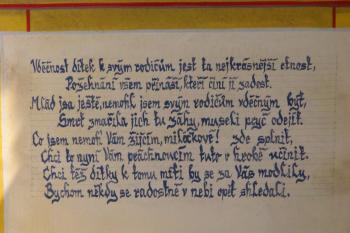 Vděčnost dítek k svým rodičům jest ta nejkrásnější ctnost,
Požehnání všem přináší, kteří činí jí zadost.
Mlád jsa ještě, nemohl jsem svým rodičům vděčným být,
Smrt zmařila jich tu snahy, museli pryč odejít.
Co jsem nemoh' Vám žijícím, miláčkové! zde splnit,
Chci to nyní Vám práchnivcím tuto v hrobě učinit.
Chci též dítky k tomu míti by se za Vás modlily,
Bychom někdy se radostně v nebi opět shledali.